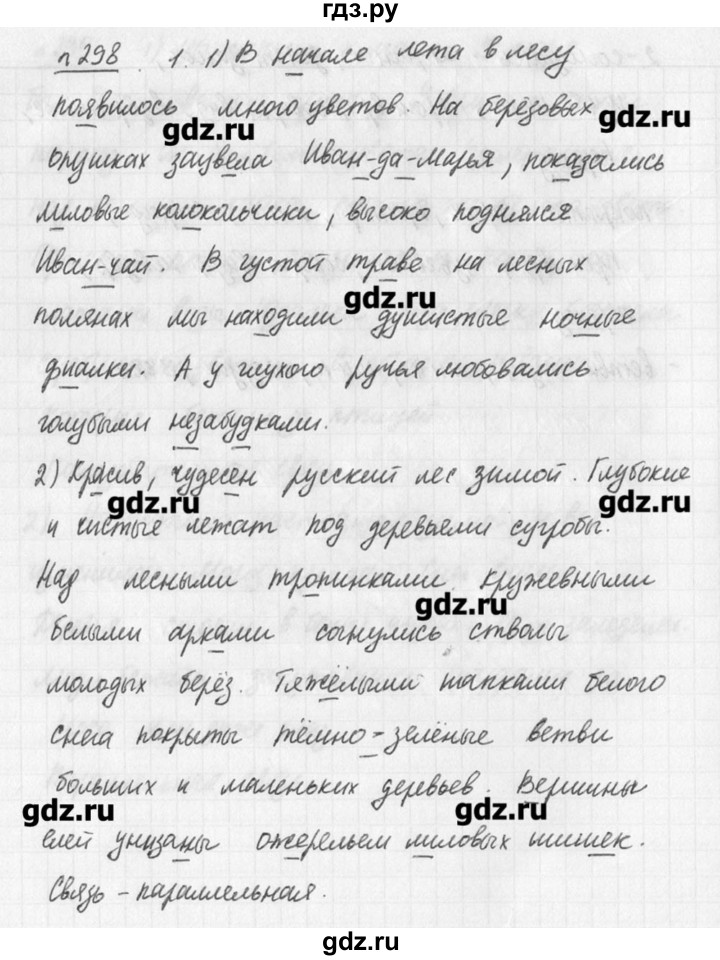 гдз.ру
п 298. 1. 1) В начале лета в лесу
появилось много цветов. На берёзовых
gdz.ru gdz.ru
опушках зацвела Иван-да-Марья, показались
лиловые колокольчики, высоко поднялся
Иван-чай. В густой траве на лесных
gdz.ru
полянах мы находили душистые ночные
фиалки. А у глухого ручья любовались
голубыми незабудками.
2) Красив, чудесен русский лес зимой. Глубокие
gdz.ru gdz.ru
и чистые лежат под деревьями сугробы.
Над лесными тропинками кружевными
gdz.ru
белыми арками согнулись стволы
молодых берёз. Тяжёлыми шапками белого
снега покрыты тёмно-зелёные ветви
больших и маленьких деревьев. Вершины
gdz.ru gdz.ru
елей унизаны ожерельем лиловых шишек.
Связь - параллельная.
gdz.ru